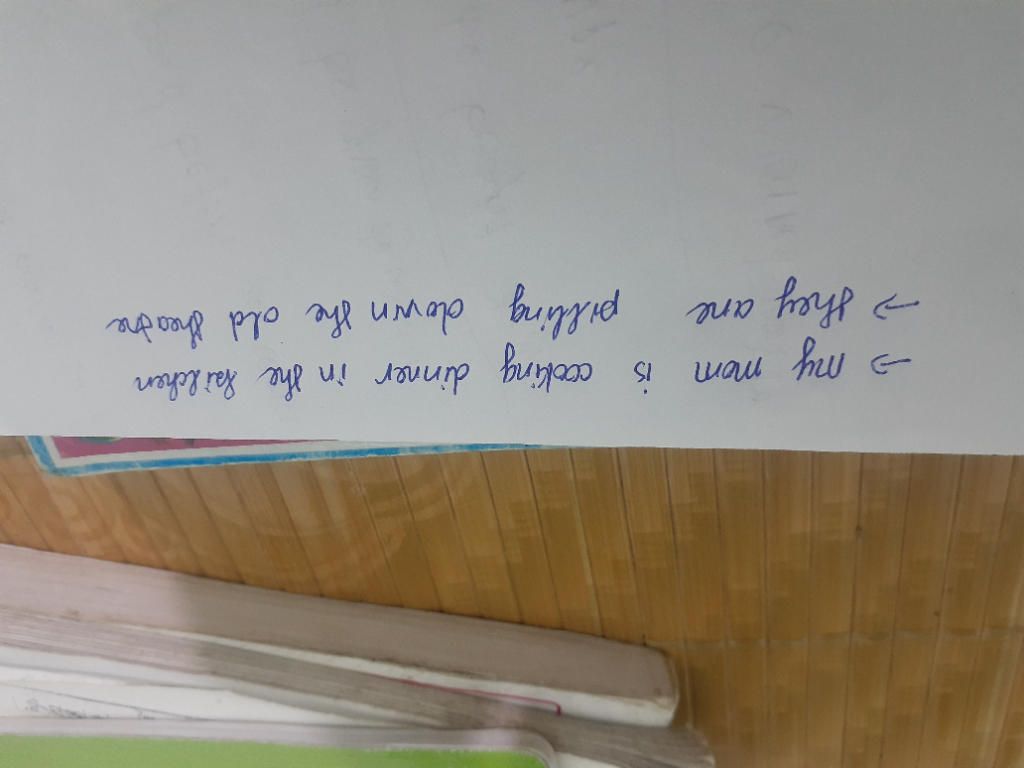 → my mom is cooking dinner in the kitchen
→ they are pilling down the old theatre